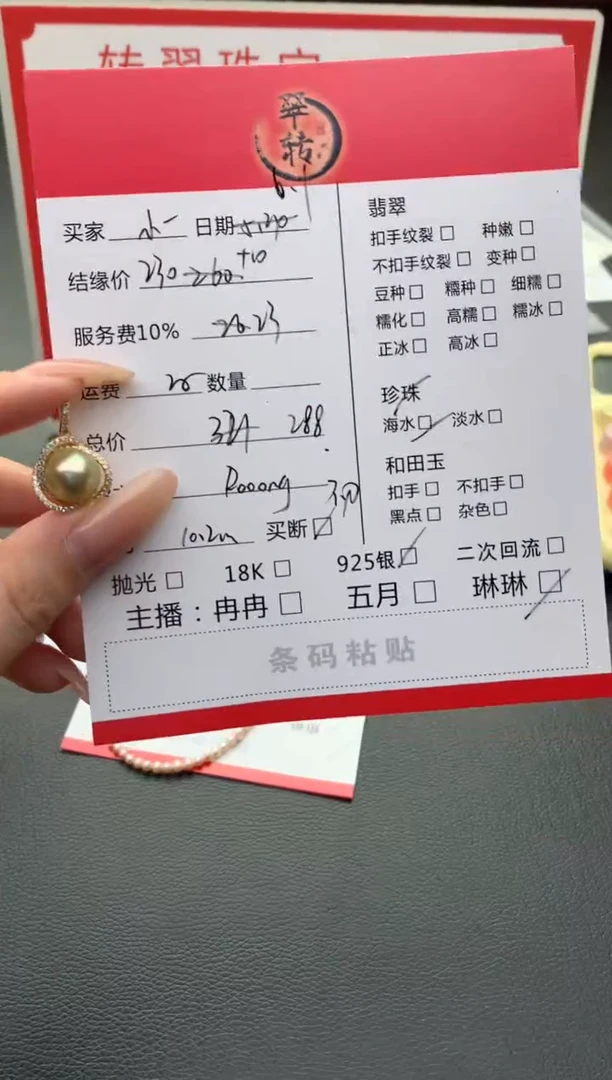 转翠珠宝
翠
转
6.1
买家 水一 日期
结缘价 230 260 +10
服务费10% 26.23
运费 20 数量
总价 324 288
Rooong
10.2m 买断☑
抛光□ 18K□ 925银☑ 二次回流□
主播：冉冉□ 五月□ 琳琳☑
条码粘贴
翡翠
扣手纹裂□ 种嫩□
不扣手纹裂□ 变种□
豆种□ 糯种□ 细糯□
糯化□ 高糯□ 糯冰□
正冰□ 高冰□
珍珠
海水☑ 淡水□
和田玉
扣手□ 不扣手□
黑点□ 杂色□